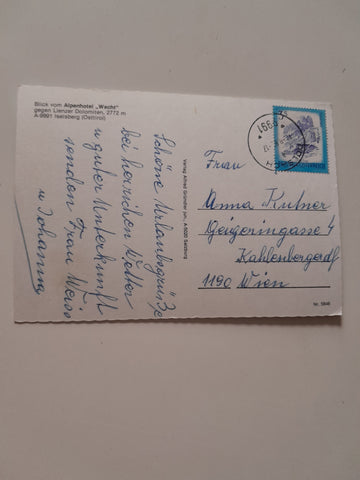 Blick vom Alpenhotel „Wacht"
gegen Lienzer Dolomiten, 2772 m
A-9991 Iselsberg (Osttirol)
Schöne Urlaubsgrüße
bei herrlichen Wetter
u guter Unterkunft
senden Frau Weiss
u Johanna
Verlag Alfred Gründler jun., A-5020 Salzburg
9991
Frau
Anna Kutner
Geigeringasse 4
Kahlenbergerdf
1190 Wien
Nr. 5846